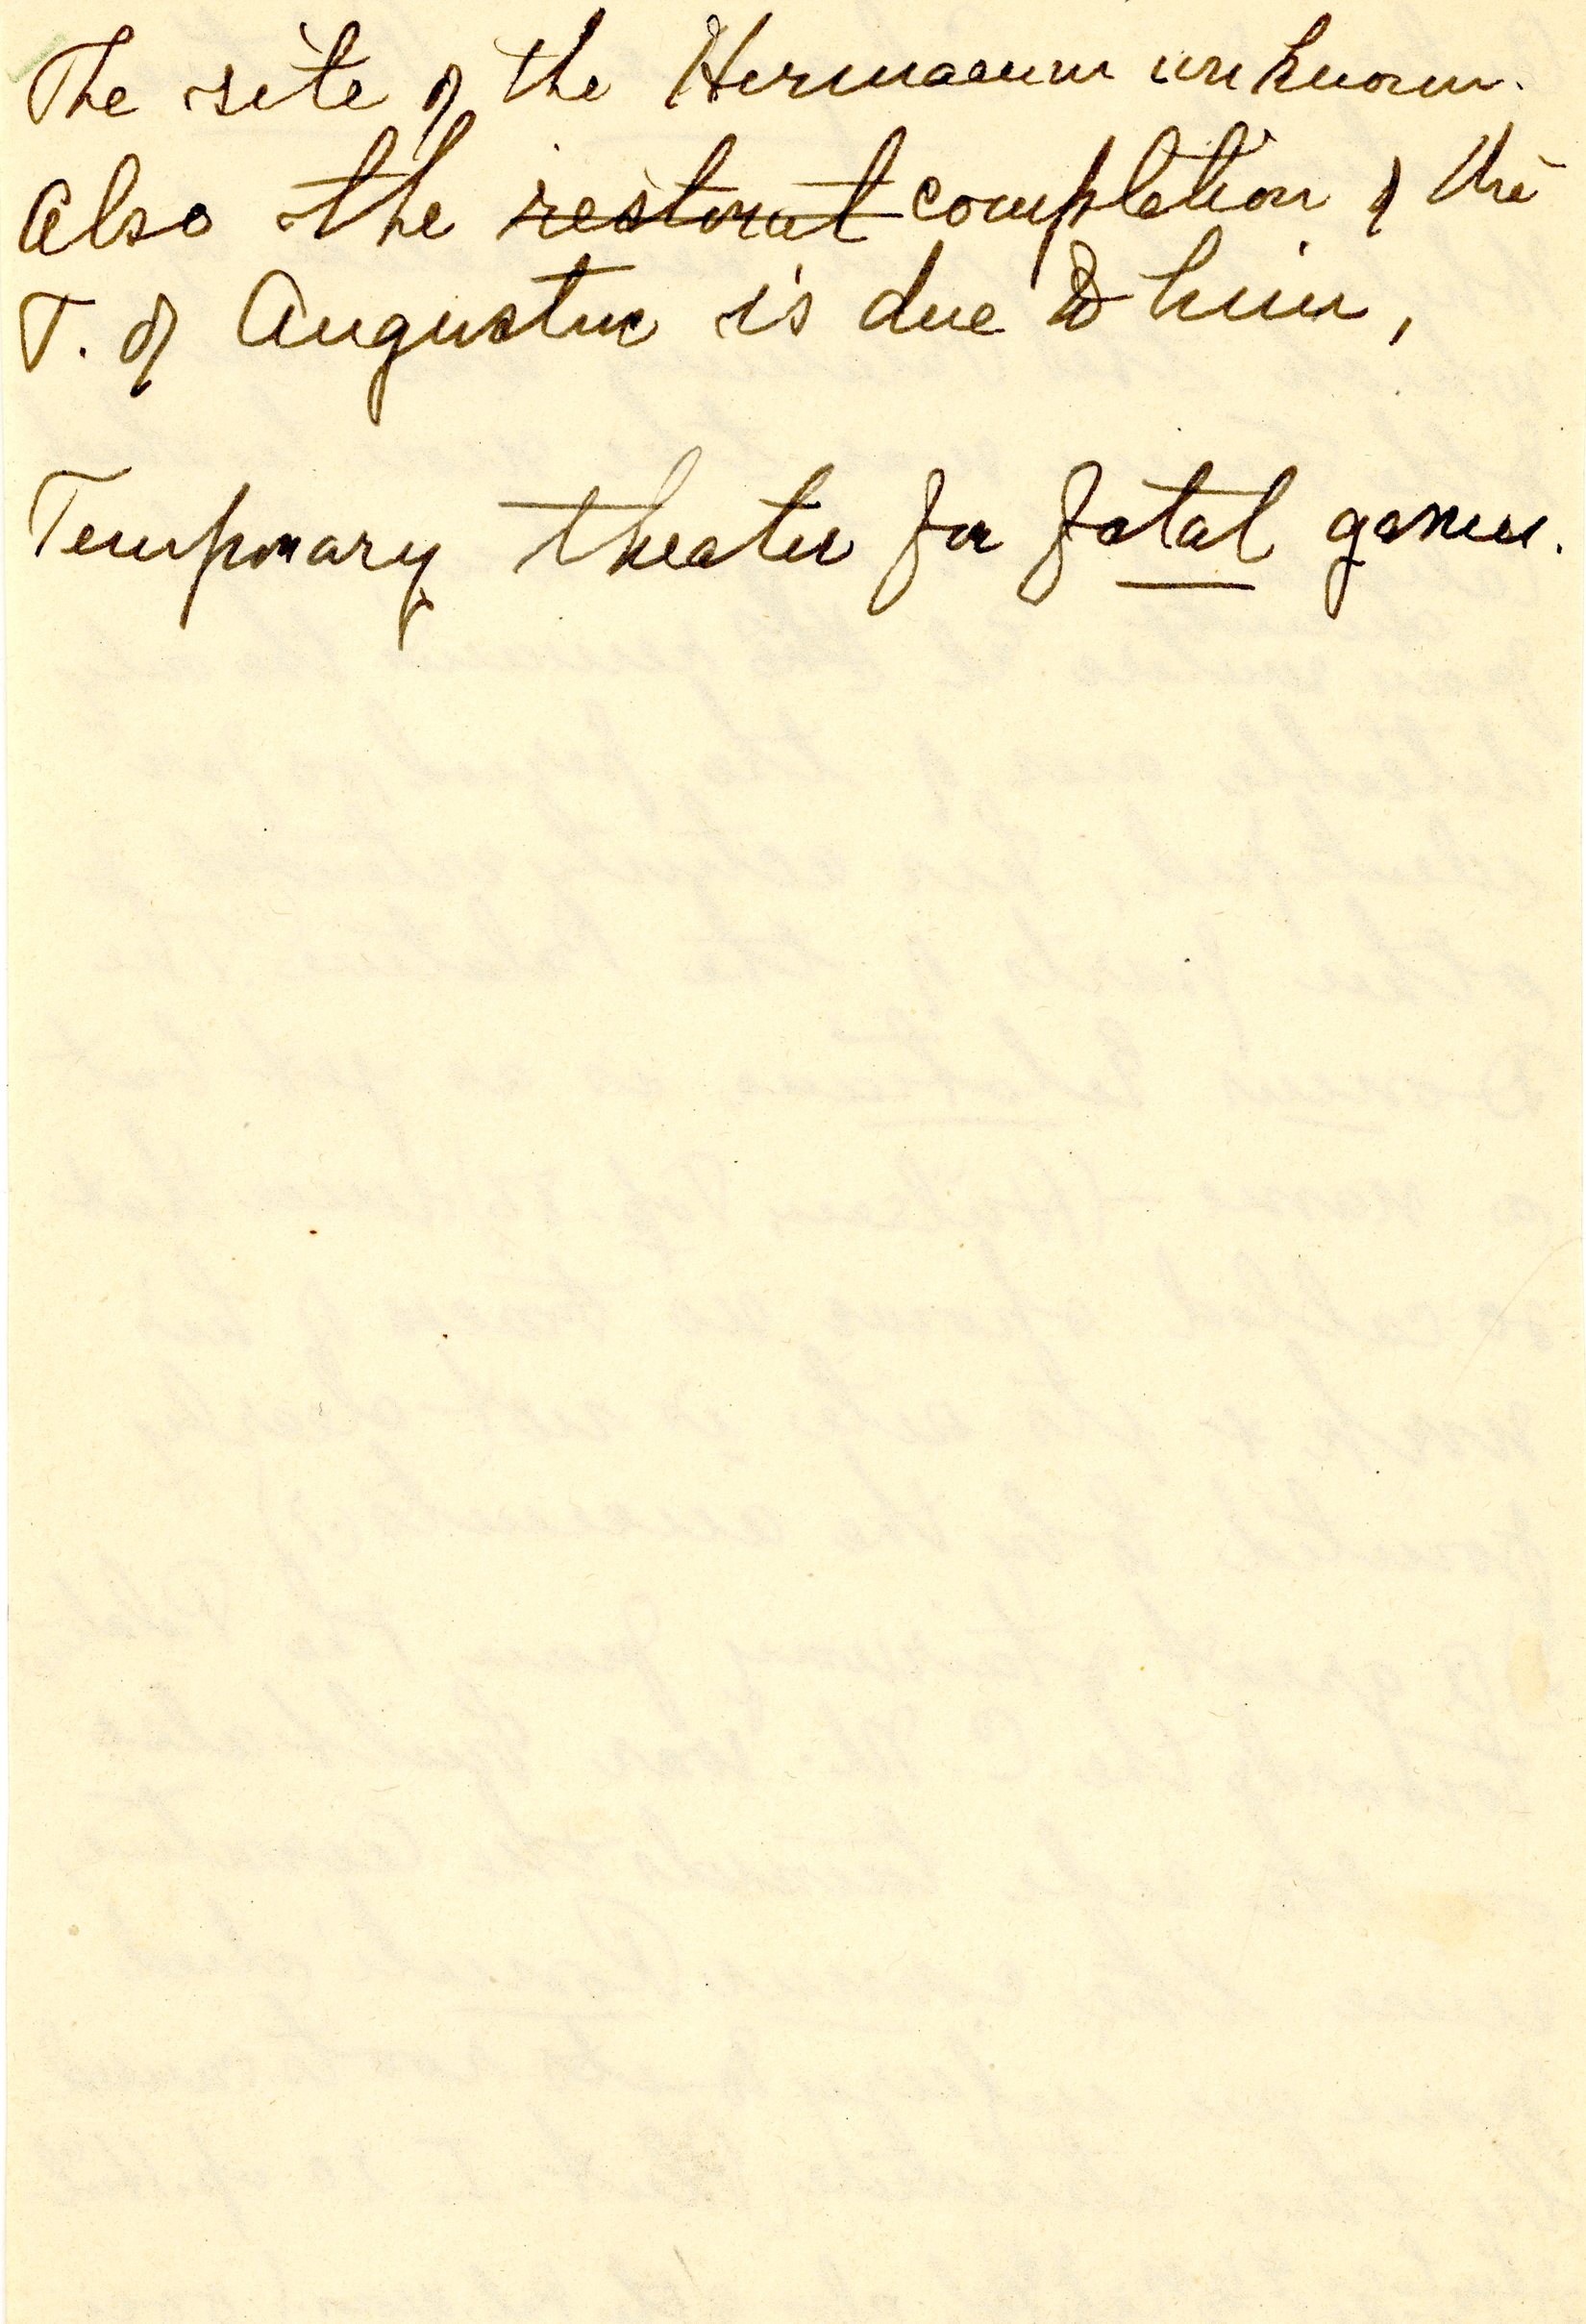 The site of the Hermaeum unknown.
Also the restorat completion of the
T. of Augustus is due to him,
Temporary theater for fatal games.